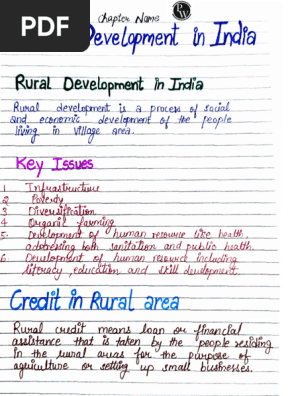 PDF
Chapter Name
PW
Development in India
Rural Development in India
Rural development is a process of social
and economic development of the people
living in village area.
Key Issues
1 Infrastructure
2 Poverty
3 Diversification
4 Organic farming
5. Development of human resource like health,
addressing both sanitation and public health.
6 Development of human resource including
literacy, education and skill development.
Credit in Rural area
Rural credit means loan or financial
assistance that is taken by the people residing
in the rural areas for the purpose of
agriculture or setting up small businesses.